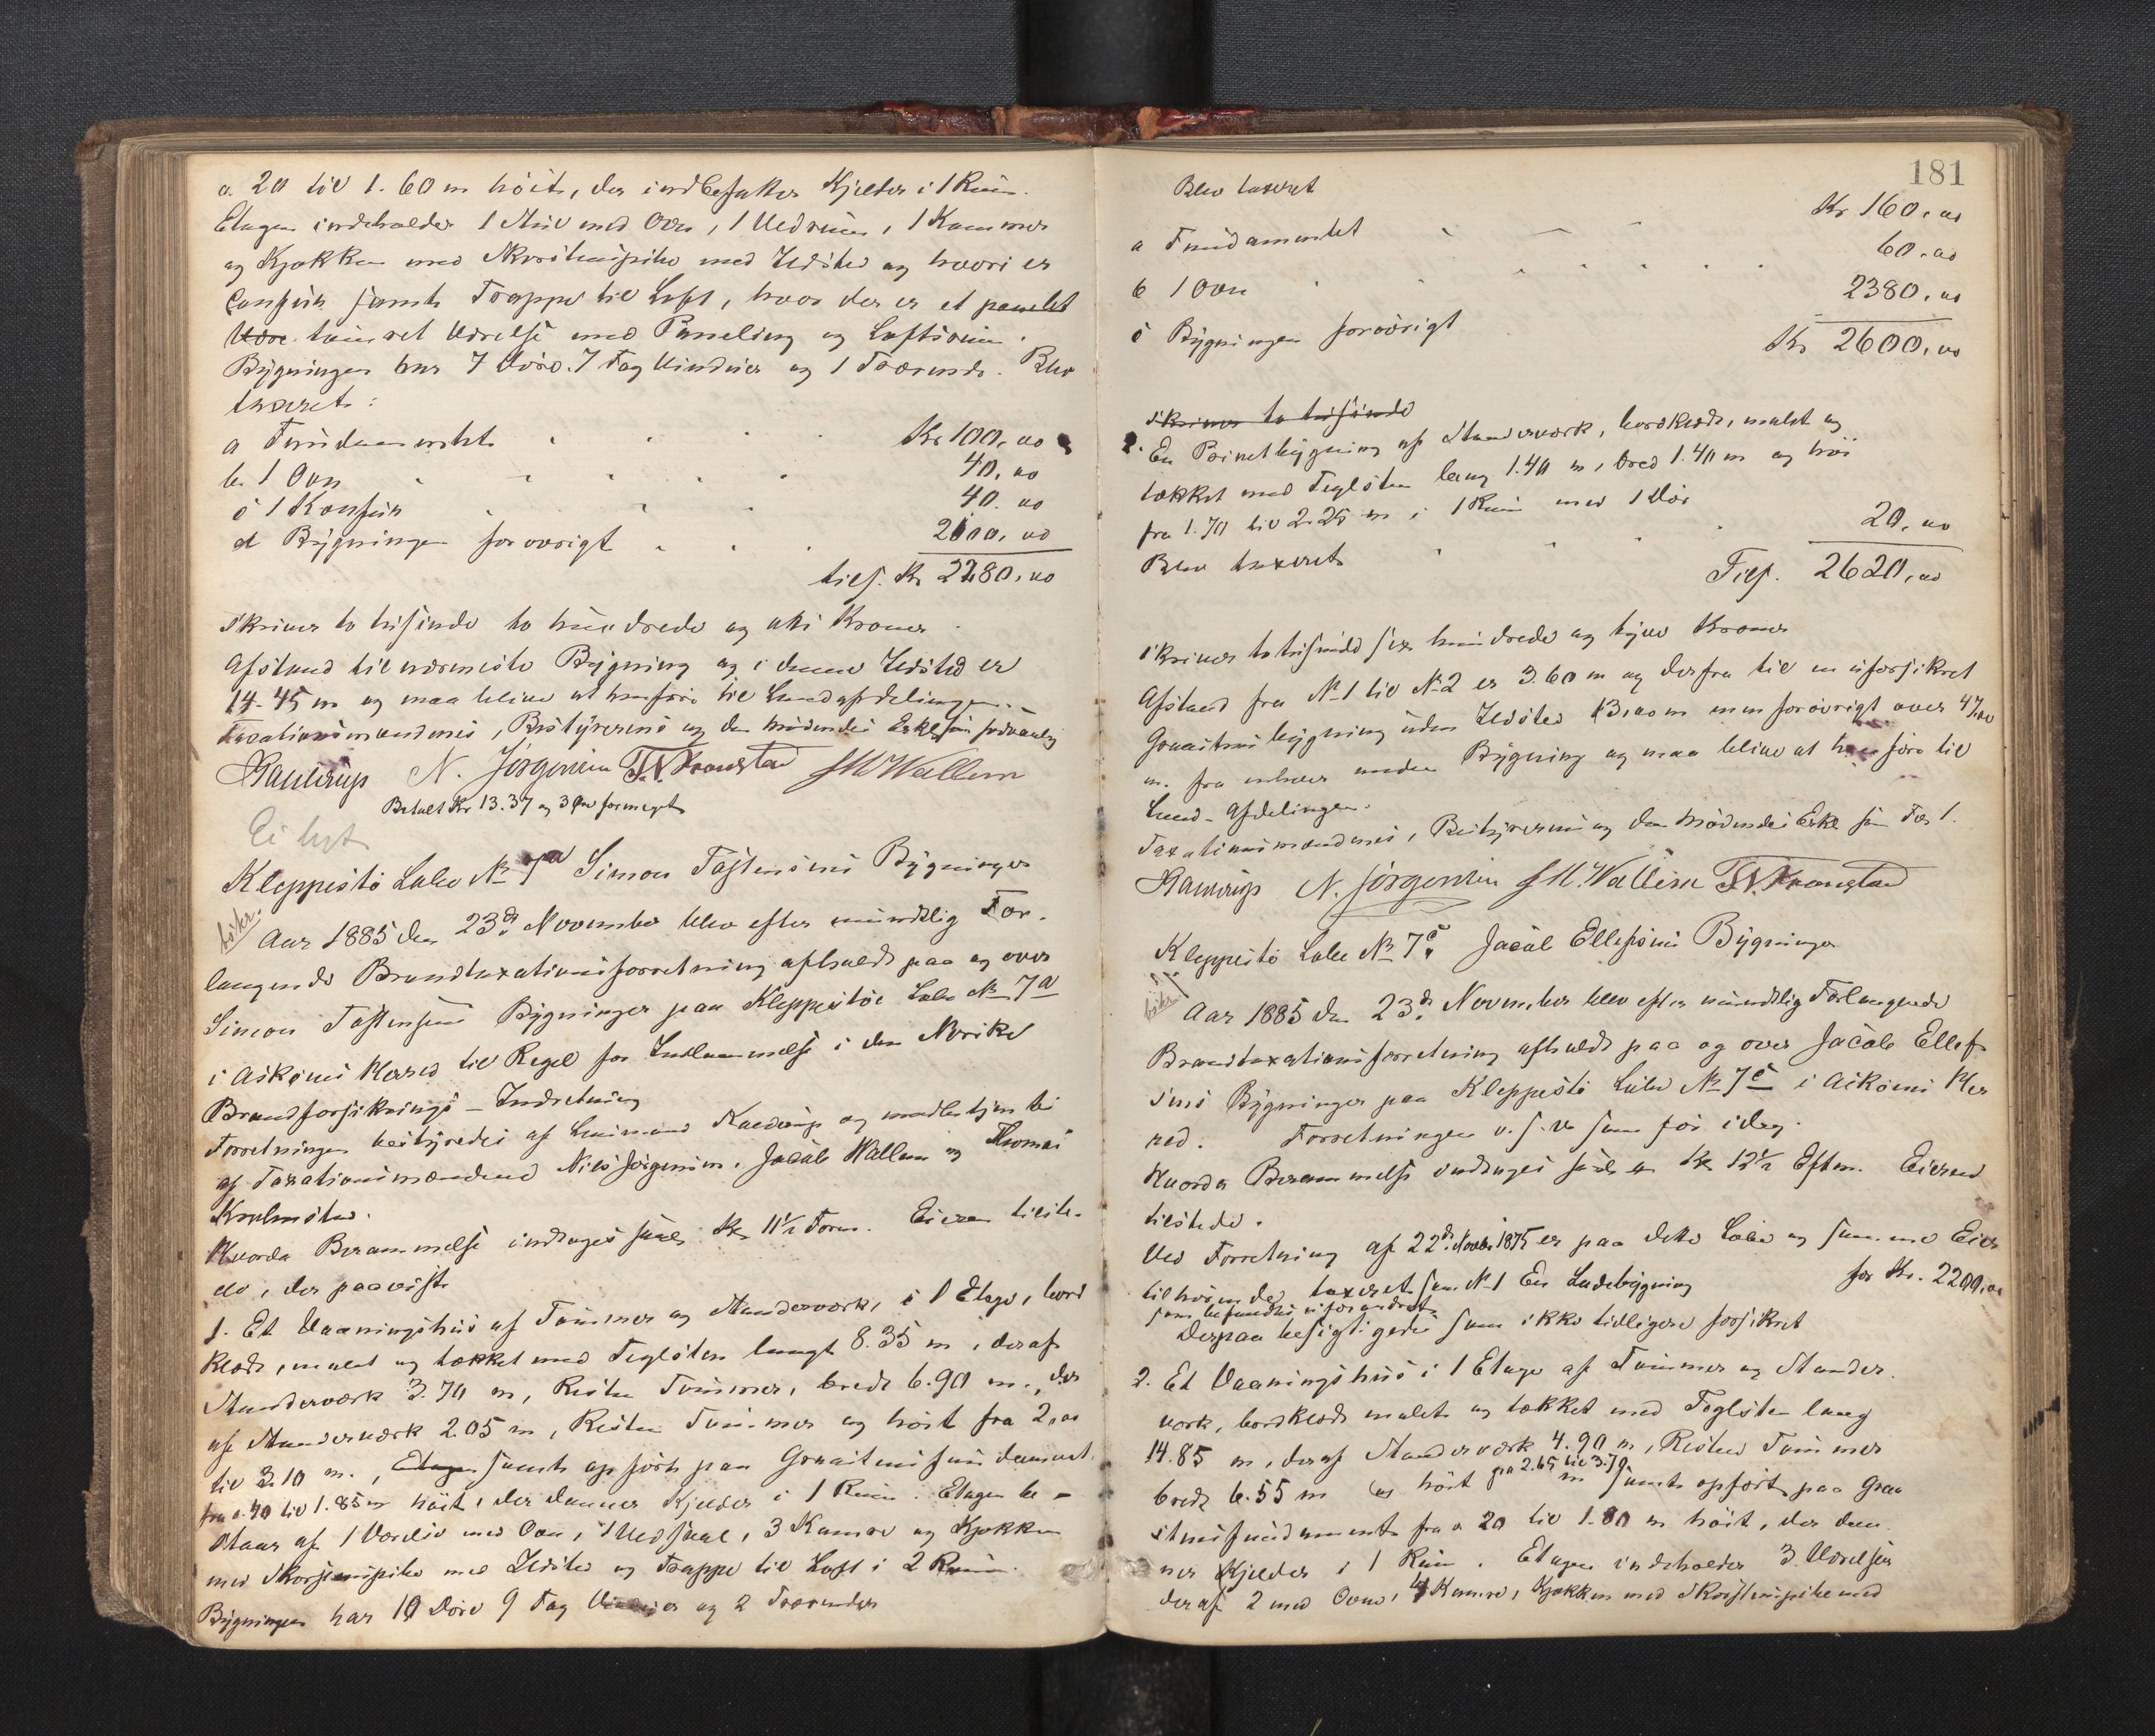 o. 20 til 1.60 m höit, der indbefatter Kjelder i 1 Rum.
Etagen indeholder 1 Stue med Ovn, 1 Vedrum, 1 Kammer
og Kjøkken med Skorstenspibe med Ildsted og hvori er
Comfur samt Trappe til Loft, hvor der er et panelet
Være tømret Værelse med Paneling og Loftsrum.
Bygningen har 7 Döre. 7 Fag Vinduer og 1 Tærende. Blev
taxeret:
a Fundamentet Kr 100,00
b. 1 Ovn 40,00
c 1 Komfur 40.00
d Bygningen forövrigt 2100,00
tils. Kr 2280,00
skriver to tusinde to hundrede og otti Kroner.
Afstand til nærmeste Bygning og i denne Ildsted er
14.45 m og maa blive at henföre til Landafdelingen.
Taxationsmændenes, Bestyrerens og den mödendes Erkl. som sedvanlig
Kaurup N. Jörgensen T. N. Kronstad J M Wallem
Betalt Kr 13.37 og 3 Öre formeget
Ei lyst
Kleppestö Løbe No 7a Simon Tostensens Bygninger
bökr.
Aar 1885 den 23de November blev efter mundtlig For-
langende Brandtaxationsforretning afholdt paa og over
Simon Tostensens Bygninger paa Kleppestöe Løbe No 7a
i Askøens Herred til Regel for Indlemmelse i den Norske
Brandforsikrings-Indretning
Forretningen bestyredes af Lensmand Kaurup og meddeltjentes
af Taxationsmændene Nils Jörgensen, Jacob Wallem og Thomas
Kronstad.
Hvorda Berammelse indtoges sted Kl. 11½ Form. Eieren tilste-
de, der paaviste
1. Et Vaaningshus af Tømmer og Stenderværk, i 1 Etage, bord
klædt, malet og tækket med Teglsten langt 8.35 m, deraf
Stenderværk 3.70 m, Resten Tømmer, bredt 6.90 m., der
af Stenderværk 2.05 m, Resten Tømmer og höit fra 2,00
til 3.10 m., Etagen samt opfört paa Graastensfundament
fra o.40 til 1.85 m höit, der danner Kjelder i 1 Rum. Etagen be-
staar af 1 Værelse med Ovn, 1 Vedskaal, 3 Kamre og Kjøkken
med Skorstenspibe med Ildsted og Trappe til Loft i 2 Rum.
Bygningen har 10 Döre 9 Fag Vinduer og 2 Tærender
181
Blev taxeret
a Fundamentet Kr 160,00
b 1 Ovn 60.00
c Bygningen forövrigt 2380,00
Kr 2600,00
skriver to tusinde
2. En Privetbygning af Stenderværk, bordklædt, malet og
tækket med Teglsten lang 1.40 m, bred 1.40 m og höi
fra 1.70 til 2.25 m i 1 Rum med 1 Dör
Blev taxeret 20,00
Tils. 2620,00
skriver to tusinde sex hundrede og tyve Kroner
Afstand fra No 1 til No 2 er 3.60 m og derfra til en uforsikret
Graastensbygning uden Ildsted 13,00 m men forövrigt over 47,00
m. fra enhver anden Bygning og maa blive at henföre til
Land-Afdelingen.
Taxationsmændenes, Bestyrerens og den mödendes Erkl som For 1.
Kaurup N. Jörgensen J M. Wallem T. N. Kronstad
Kleppestö Løbe No 7c, Jacob Ellefsens Bygninger
bökr
Aar 1885 den 23de November blev efter mundtlig Forlangende
Brandtaxationsforretning afholdt paa og over Jacob Ellef-
sens Bygninger paa Kleppestö Løbe No 7c i Askøens Her
red. Forretningen o. s. v. som för idag.
Hvorda Berammelse indtoges sted Kl. 12½ Efterm. Eieren
tilstede.
Ved Forretning af 22de Novbr 1875 er paa dette Løbe og samme Eier
tilhörende taxeret som No 1 En Ladebygning for Kr. 2200,00
som befandtes uforandret
Derpaa besigtigedes som ikke tidligere forsikret
2. Et Vaaningshus i 1 Etage af Tømmer og Stender-
værk, bordklædt malet og tækket med Teglsten lang
14.85 m, deraf Stenderværk 4.90 m, Resten Tømmer
bredt 6.55 m og höit fra 2.65 til 3.70 m samt opfört paa Graa
stensfundament fra o 20 til 1.80 m höit, der dan
ner Kjelder i 1 Rum. Etagen indeholder 3 Værelser
deraf 2 med Ovne, 4 Kamre, Kjøkken med Skorstenspibe med